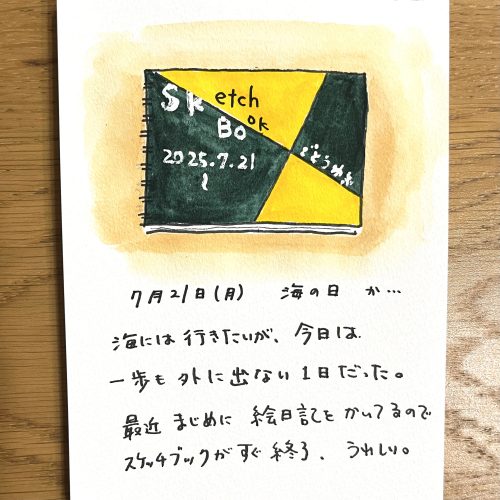 Sketch
Book
2025.7.21
～
ごとうめぐ
7月21日(月) 海の日 か…
海には行きたいが、今日は
一歩も外に出ない1日だった。
最近 まじめに 絵日記をかいてるので
スケッチブックがすぐ終了、うれしい。